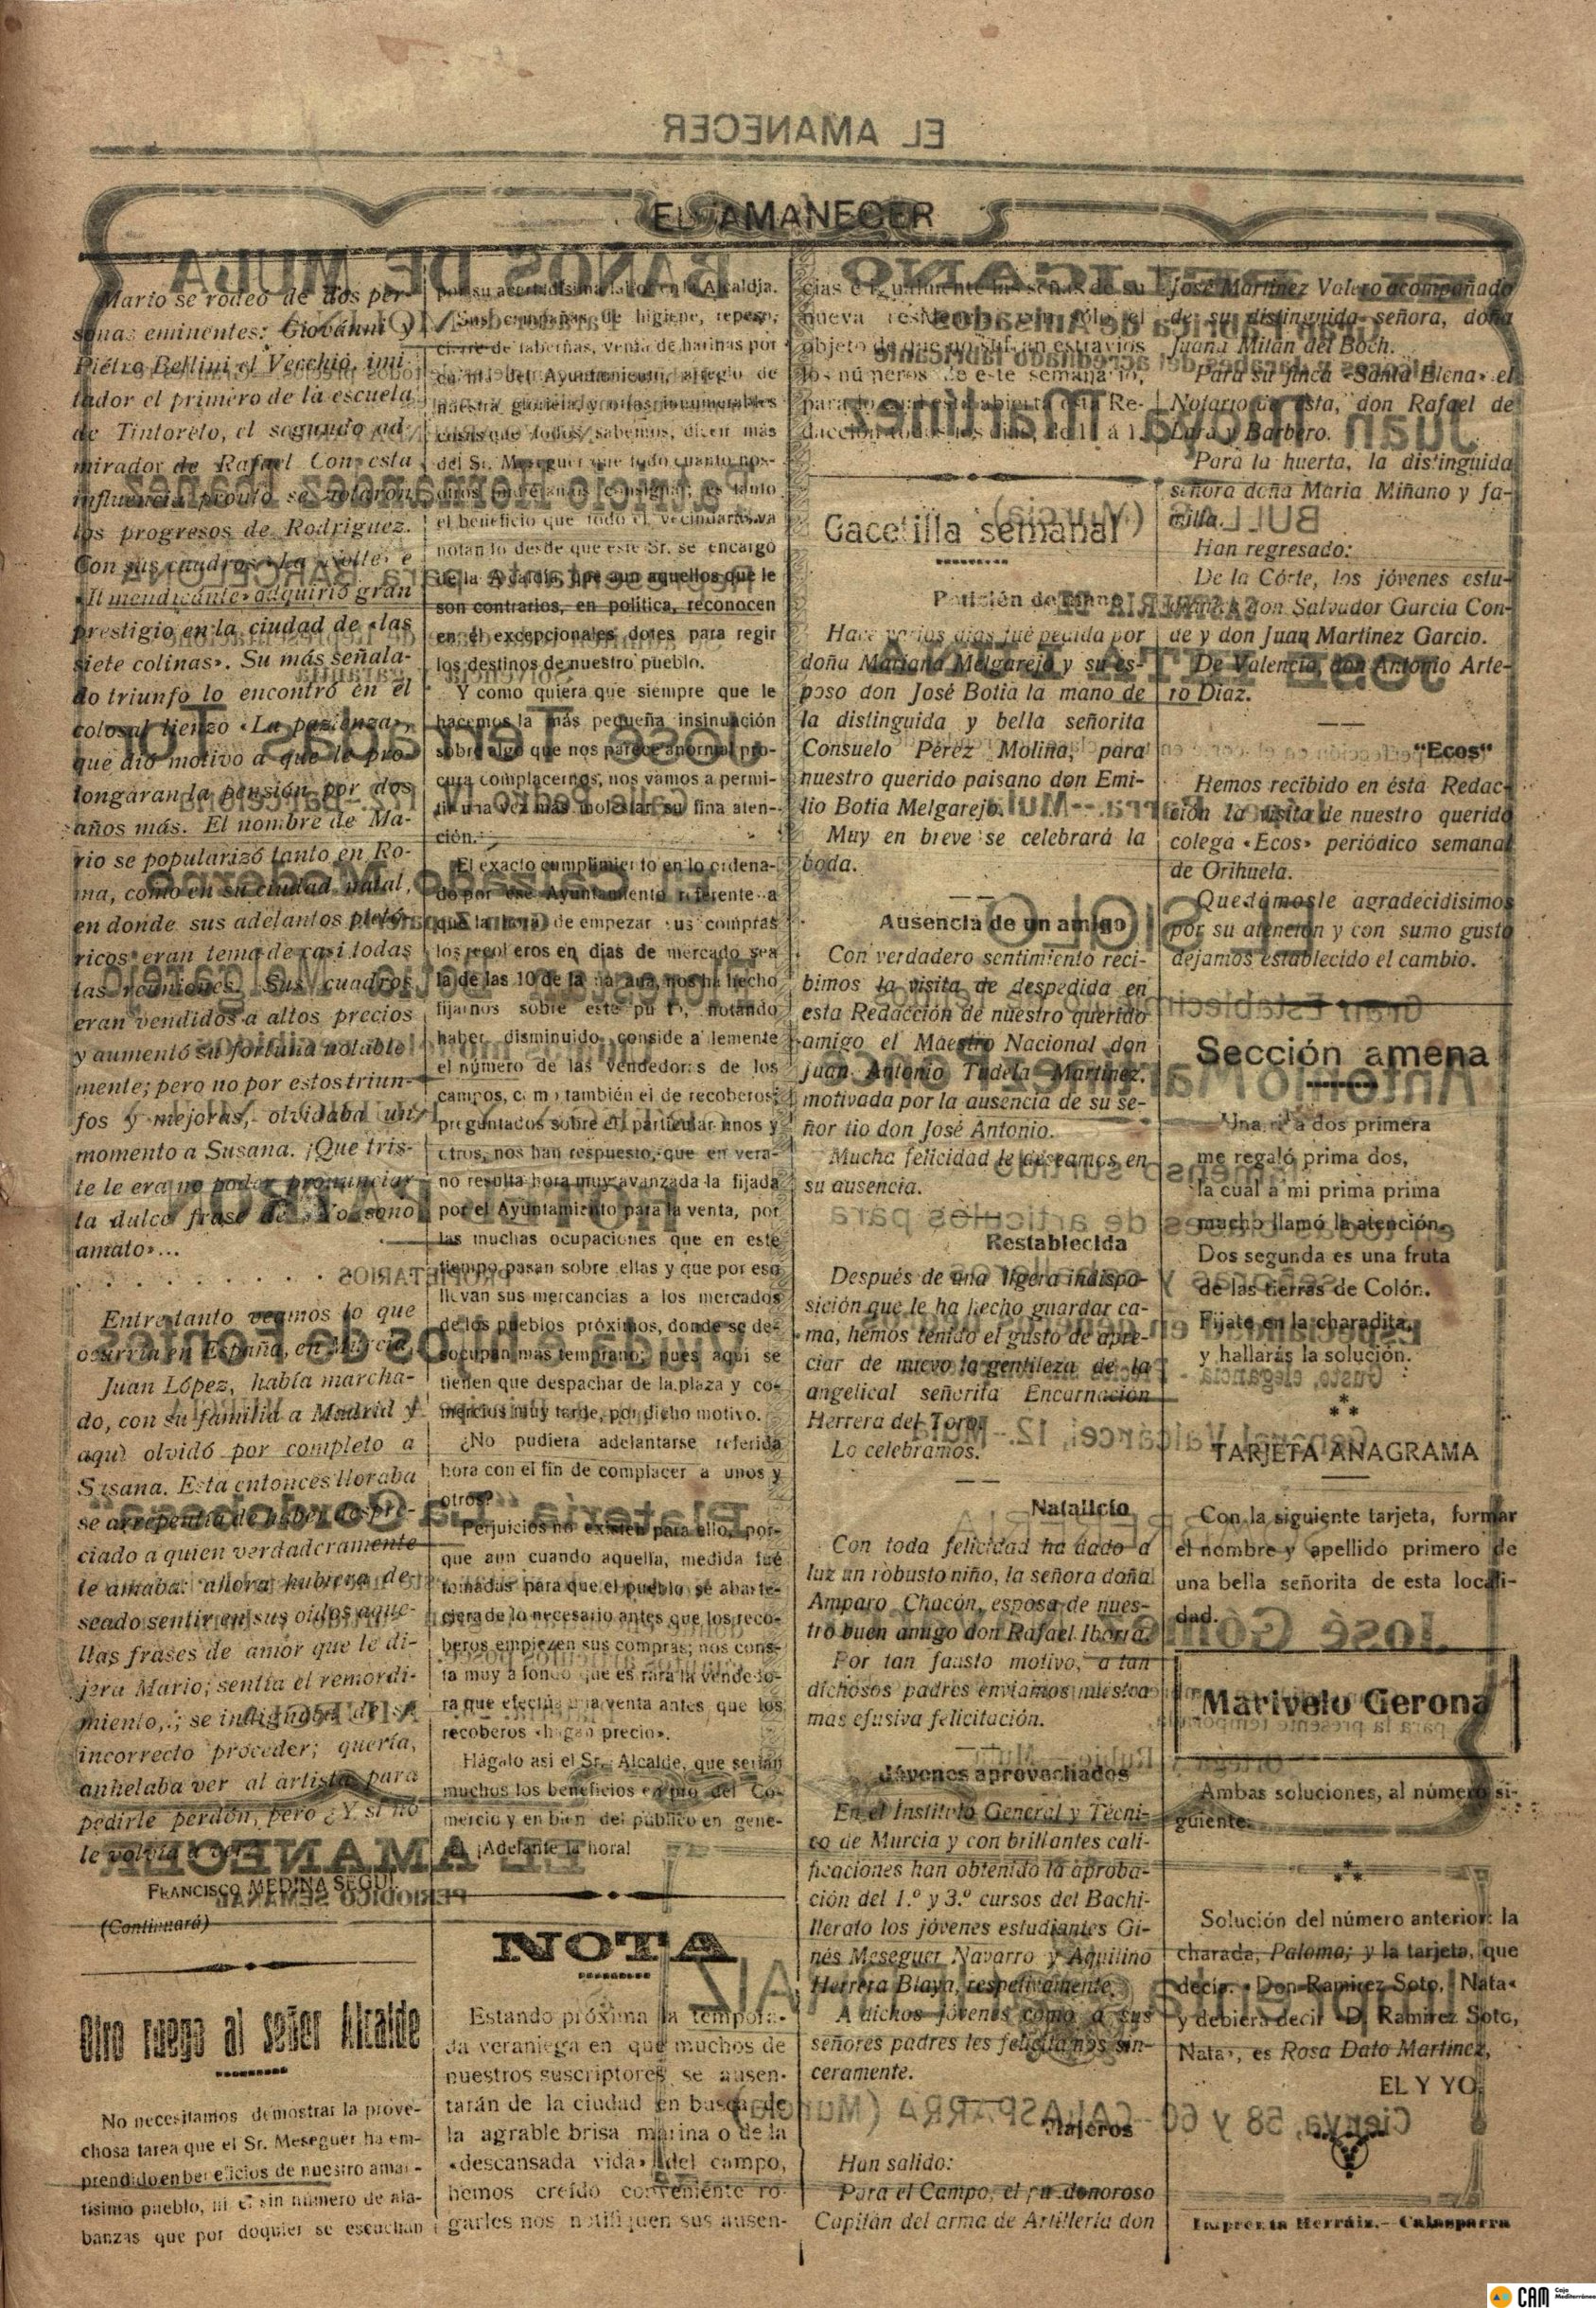 EL AMANECER
Mario se rodeó de dos per-
sonas eminentes: Giovánni y
Piétro Bellini el Vecchió, imi-
tador el primero de la escuela
de Tintoreto, el segundo ad-
mirador de Rafael Con esta
influencia pronto se notaron
los progresos de Rodriguez.
Con sus cuadros «La Notte» e
«Il mendicante» adquirió gran
prestigio en la ciudad de «las
siete colinas». Su más señala-
do triunfo lo encontró en el
colosal lienzo «La pazienza»,
que dió motivo a que le pro-
longaran la pensión por dos
años más. El nombre de Ma-
rio se popularizó tanto en Ro-
ma, como en su ciudad natal,
en donde sus adelantos pictó-
ricos eran tema de casi todas
las reuniones. Sus cuadros
eran vendidos a altos precios
y aumentó su fortuna notable-
mente; pero no por estos triun-
fos y mejoras, olvidaba un
momento a Susana. ¡Que tris-
te le era no poder pronunciar
la dulce frase de «Yo sono
amato»...
. . . . . . . . .
Entretanto veamos lo que
ocurría en España, en Murcia.
Juan López, había marcha-
do, con su familia a Madrid y
aquì olvidó por completo a
Susana. Esta entonces lloraba
se arrepentía de haber despre-
ciado a quien verdaderamente
le amaba: ahora hubiera de-
seado sentir en sus oidos aque-
llas frases de amor que le di-
jera Mario; sentía el remordi-
miento,; se indignaba de su
incorrecto proceder; quería,
anhelaba ver al artista para
pedirle perdón, pero ¿Y si no
le volvía a ver?
FRANCISCO MEDINA SEGUI.
(Continuará)
Otro ruego al señor Alcalde
No necesitamos demostrar la prove-
chosa tarea que el Sr. Meseguer ha em-
prendido en beneficios de nuestro aman-
tisimo pueblo, ni el sin número de ala-
banzas que por doquier se escuchan
por su acertadisima labor en la Alcaldia.
Sus campañas de higiene, repeso,
cierre de tabernas, venta de harinas por
cuenta del Ayuntamiento, arreglo de
nuestra glorieta y otras innumerables
cosas que todos sabemos, dicen más
del Sr. Meseguer que todo cuanto nos-
otros pudieramos consignar; es tanto
el beneficio que todo el vecindario va
notando desde que este Sr. se encargó
de la Alcaldia, que aun aquellos que le
son contrarios, en politica, reconocen
en él excepcionales dotes para regir
los destinos de nuestro pueblo.
Y como quiera que siempre que le
hacemos la más pequeña insinuación
sobre algo que nos parece anormal pro-
cura complacernos, nos vamos a permi-
tir una vez más molestar su fina aten-
ción.
El exacto cumplimiento en lo ordena-
do por ese Ayuntamiento referente a
que la hora de empezar sus compras
los recoberos en dias de mercado sea
la de las 10 de la mañana, nos ha hecho
fijarnos sobre este punto, notando
haber disminuido considerablemente
el número de las vendedoras de los
campos, como también el de recoberos;
preguntados sobre el particular unos y
otros, nos han respuesto, que en vera-
no resulta hora muy avanzada la fijada
por el Ayuntamiento para la venta, por
las muchas ocupaciones que en este
tiempo pasan sobre ellas y que por eso
llevan sus mercancias a los mercados
de los pueblos próximos, donde se de-
socupan más temprano; pues aqui se
tienen que despachar de la plaza y co-
mercios muy tarde, por dicho motivo.
¿No pudiera adelantarse referida
hora con el fin de complacer a unos y
otros?
Perjuicios no existen para ello, por-
que aun cuando aquella, medida fué
tomada para que el pueblo se abaste-
ciera de lo necesario antes que los reco-
beros empiezen sus compras; nos cons-
ta muy a fondo que es rara la vendedo-
ra que efectúa una venta antes que los
recoberos «hagan precio».
Hágalo asi el Sr. Alcalde, que serian
muchos los beneficios en pro del Co-
mercio y en bien del público en gene-
ral. ¡Adelante la hora!
NOTA
Estando próxima la tempora-
da veraniega en que muchos de
nuestros suscriptores se ausen-
tarán de la ciudad en busca de
la agrable brisa marina o de la
«descansada vida» del campo,
hemos creído conveniente ro-
garles nos notifiquen sus ausen-
cias e igualmente las señas de su
nueva residencia, sólo el
objeto de que no sufran estravios
los números de este semanario,
para lo cual está abierta esta Re-
dacción todos los dias, de 11 á 1.
Gacetilla semanal
Petición de mano
Hace varios dias fué pedida por
doña Mariana Melgarejo y su es-
poso don José Botia la mano de
la distinguida y bella señorita
Consuelo Pérez Molina, para
nuestro querido paisano don Emi-
lio Botia Melgarejo.
Muy en breve se celebrará la
boda.
Ausencia de un amigo
Con verdadero sentimiento reci-
bimos la visita de despedida en
esta Redacción de nuestro querido
amigo el Maestro Nacional don
Juan Antonio Tudela Martinez.
motivada por la ausencia de su se-
ñor tio don José Antonio.
Mucha felicidad le deseamos en
su ausencia.
Restablecida
Después de una ligera indispo-
sición que le ha hecho guardar ca-
ma, hemos tenido el gusto de apre-
ciar de nuevo la gentileza de la
angelical señorita Encarnación
Herrera del Toro.
Lo celebramos.
Natalicio
Con toda felicidad ha dado a
luz un robusto niño, la señora doña
Amparo Chacón, esposa de nues-
tro buen amigo don Rafael Iborra.
Por tan fausto motivo, a tan
dichosos padres enviamos nuestra
mas efusiva felicitación.
Jóvenes aprovechados
En el Instituto General y Técni-
co de Murcia y con brillantes cali-
ficaciones han obtenido la aproba-
ción del 1.º y 3.º cursos del Bachi-
llerato los jóvenes estudiantes Gi-
nés Meseguer Navarro y Aquilino
Herrera Blaya, respetivamente.
A dichos jóvenes como a sus
señores padres les felicitamos sin-
ceramente.
Viajeros
Han salido:
Para el Campo, el pundonoroso
Capitán del arma de Artillería don
José Martinez Valero acompañado
de su distinguida señora, doña
Juana Milán del Boch.
Para su finca «Santa Elena» el
Notario de ésta, don Rafael de
Lara y Barbero.
Para la huerta, la distinguida
señora doña Maria Miñano y fa-
milia.
Han regresado:
De la Córte, los jóvenes estu-
diantes don Salvador Garcia Con-
de y don Juan Martinez Garcio.
De Valencia, don Antonio Arte-
ro Diaz.
"Ecos"
Hemos recibido en ésta Redac-
ción la visita de nuestro querido
colega «Ecos» periódico semanal
de Orihuela.
Quedámosle agradecidisimos
por su atención y con sumo gusto
dejamos establecido el cambio.
Sección amena
Una a dos primera
me regaló prima dos,
la cual a mi prima prima
mucho llamó la atención.
Dos segunda es una fruta
de las tierras de Colón.
Fijate en la charadita,
y hallarás la solución.
***
TARJETA ANAGRAMA
Con la siguiente tarjeta, formar
el nombre y apellido primero de
una bella señorita de esta locali-
dad.
Marivelo Gerona
Ambas soluciones, al número si-
guiente.
***
Solución del número anterior: la
charada, Paloma; y la tarjeta, que
decía: «Don Ramirez Soto, Nata»
y debiera decir «D. Ramirez Soto,
Nata», es Rosa Dato Martinez,
EL Y YO.
Imprenta Herráiz.- Calasparra
CAM Caja Mediterráneo